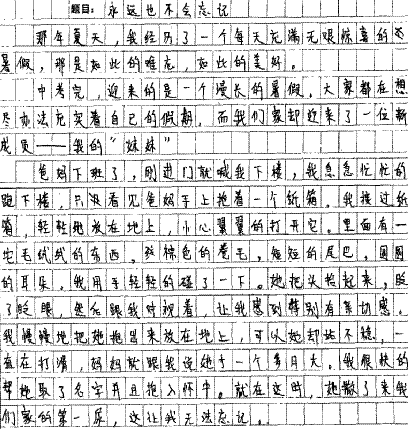 题目：永远也不会忘记
那年夏天，我经历了一个每天充满无限惊喜的
暑假，那是如此的难忘，如此的美好。
中考完，迎来的是一个漫长的暑假，大家都在想
尽办法充实着自己的假期，而我们家却迎来了一位新
成员——我的“妹妹”
爸妈下班了，刚进门就喊我下楼，我急急忙忙的
跑下楼，只看见爸妈手上抱着一个纸箱。我接过纸
箱，轻轻地放在地上，小心翼翼的打开它。里面有一
坨毛绒绒的东西，棕色的卷毛，短短的尾巴，圆圆
的耳朵。我用手轻轻的碰了一下。她把头抬起来，眨
了眨眼，然后跟我对视着，让我感到特别有亲切感。
我慢慢地把她抱出来放在地上，可以她却站不稳，一
直在打滑，妈妈就跟我说她才一个多月大。我很快的
帮她取了名字并且抱入怀中。就在这时，她撒了来我
们家的第一尿，这让我无法忘记。